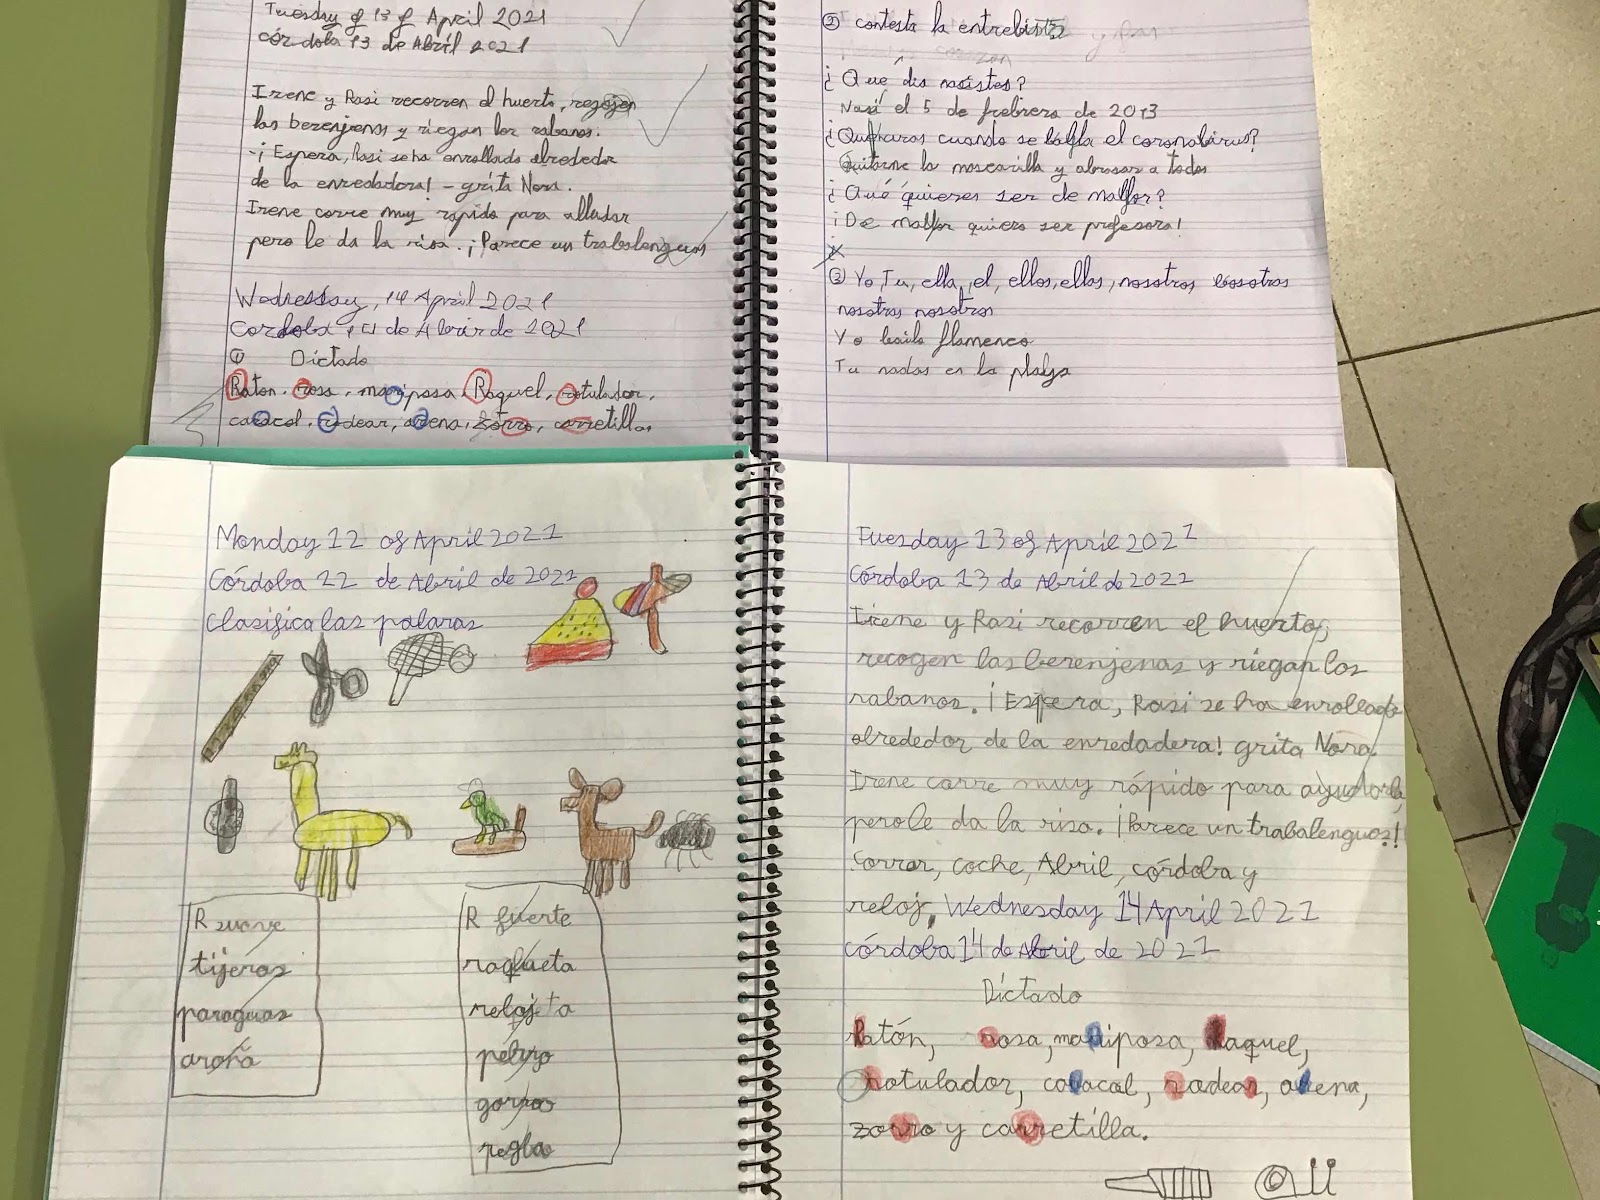 Tuesday of 13 of April 2021
Córdoba 13 de Abríl 2021
Irene y Rasi recorren el huerto, recojen
las berenjenas y riegan los rabanos.
-¡Espera, Rasi se ha enrollado alrededor
de la enredadera! - gríta Nora.
Irene corre muy rápido para
pero le da la risa. ¡Parece un trabalenguas
Wednessday, 14 April 2021
Cordoba 14 de Abrir de 2021
① Dictado
Raton, rosa, mariposa, Raquel, rotulador,
caracol, rodear, arena, zorro, carretilla,
② contesta la
¿Qué día nasistes?
Nasí el 5 de frebrero de 2013
cuando se el coronabirus?
Quitarme la mascarilla y abrasar a todos
¿Qué quieres ser de mallor?
¡De mallor quiero ser profesora!
③ Yo, Tu, ella, el, ellos, ellas, nosotros bosotros
nosotras nosotros
Yo baila flamenco
Tu nadas en la playa
Monday 12 of April 2021
Córdoba 12 de Abril de 2021
Clasifica las palaras
R suave
tijeras
paraguas
araña
R fuerte
raqueta
reloj
perro
gorro
regla
Tuesday 13 of April 2021
Córdoba 13 de Abril de 2021
Irene y Rasi recorren el huerto,
recogen las berenjenas y riegan los
rabanos. ¡Espera, Rasi se ha enrollado
alrededor de la enredadera! grita Nora.
Irene corre muy rápido para ayudarla
pero le da la risa. ¡Parece un trabalenguas!
Correr, coche, Abril, córdoba y
reloj. Wednesday 14 April 2021
Córdoba 14 de Abril de 2021
Dictado
Ratón, rosa, mariposa, Raquel,
rotulador, caracol, rodear, arena,
zorro y carretilla.